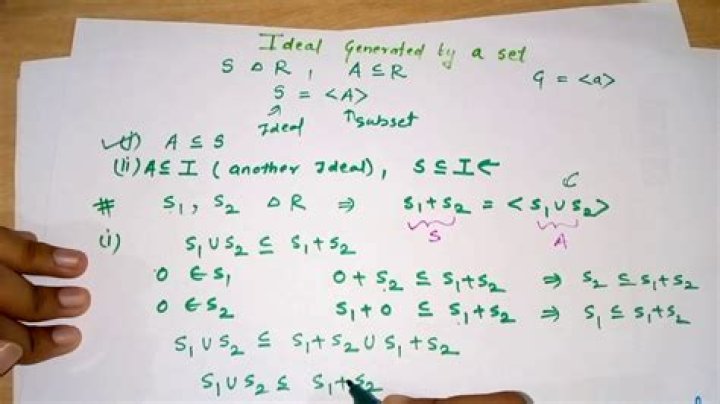 Ideal Generated by a set
S Δ R, A ⊆ R G = <a>
S = <A>
↑ ↑subset
Ideal
(i) A ⊆ S
(ii) A ⊆ I (another Ideal), S ⊆ I ←
# S₁, S₂ Δ R ⇒ S₁+S₂ = <S₁ ∪ S₂>
S A
(i) S₁ ∪ S₂ ⊆ S₁+S₂
0 ∈ S₁ 0 + S₂ ⊆ S₁+S₂ ⇒ S₂ ⊆ S₁+S₂
0 ∈ S₂ S₁+0 ⊆ S₁+S₂ ⇒ S₁ ⊆ S₁+S₂
S₁ ∪ S₂ ⊆ S₁+S₂ ∪ S₁+S₂
S₁ ∪ S₂ ⊆ S₁+S₂